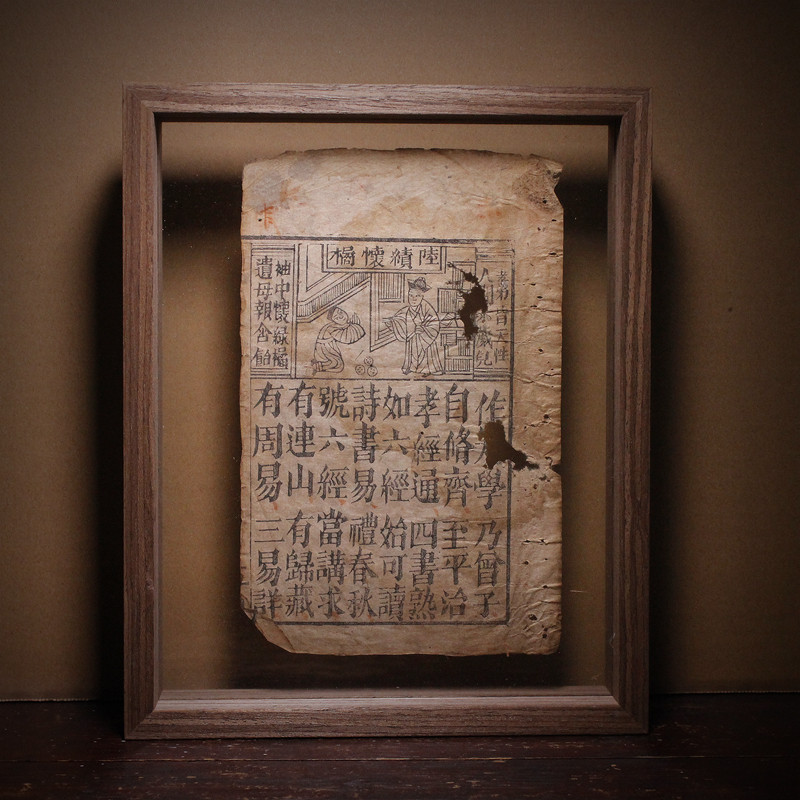 陸績懷橘
孝弟皆天性
人間歲兒
袖中懷綠橘
遺母報含飴
作學乃曾子
自脩齊至平治
孝經通四書熟
如六經始可讀
詩書易禮春秋
號六經當講求
有連山有歸藏
有周易三易詳